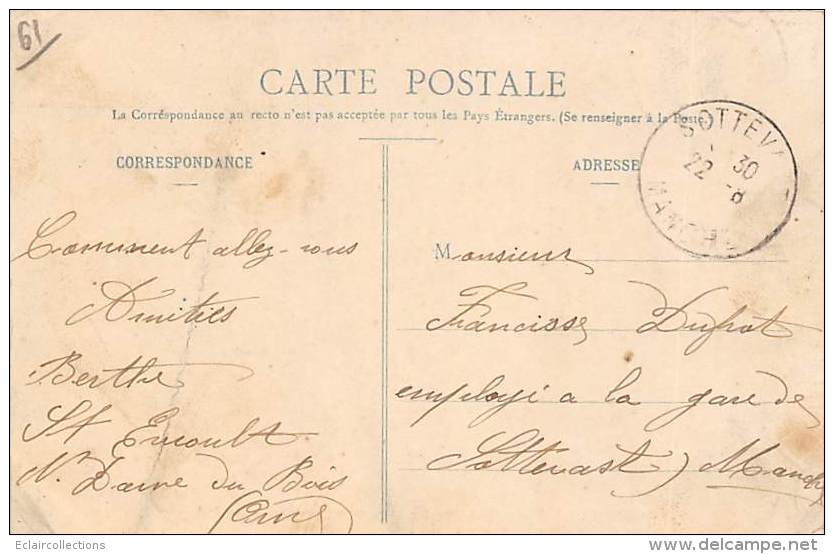 61
CARTE POSTALE
La Correspondance au recto n'est pas acceptée par tous les Pays Étrangers. (Se renseigner à la Poste)
CORRESPONDANCE
ADRESSE
SOTTEVAST
30
22 -8
MANCHE
Comment allez-vous
Amitiés
Berthe
St Evroult
N. Dame du Bois
Monsieur
Francisse Dufrot
employé a la gare de
Sottevast) Manche
Eclaircollections
delcampe.net